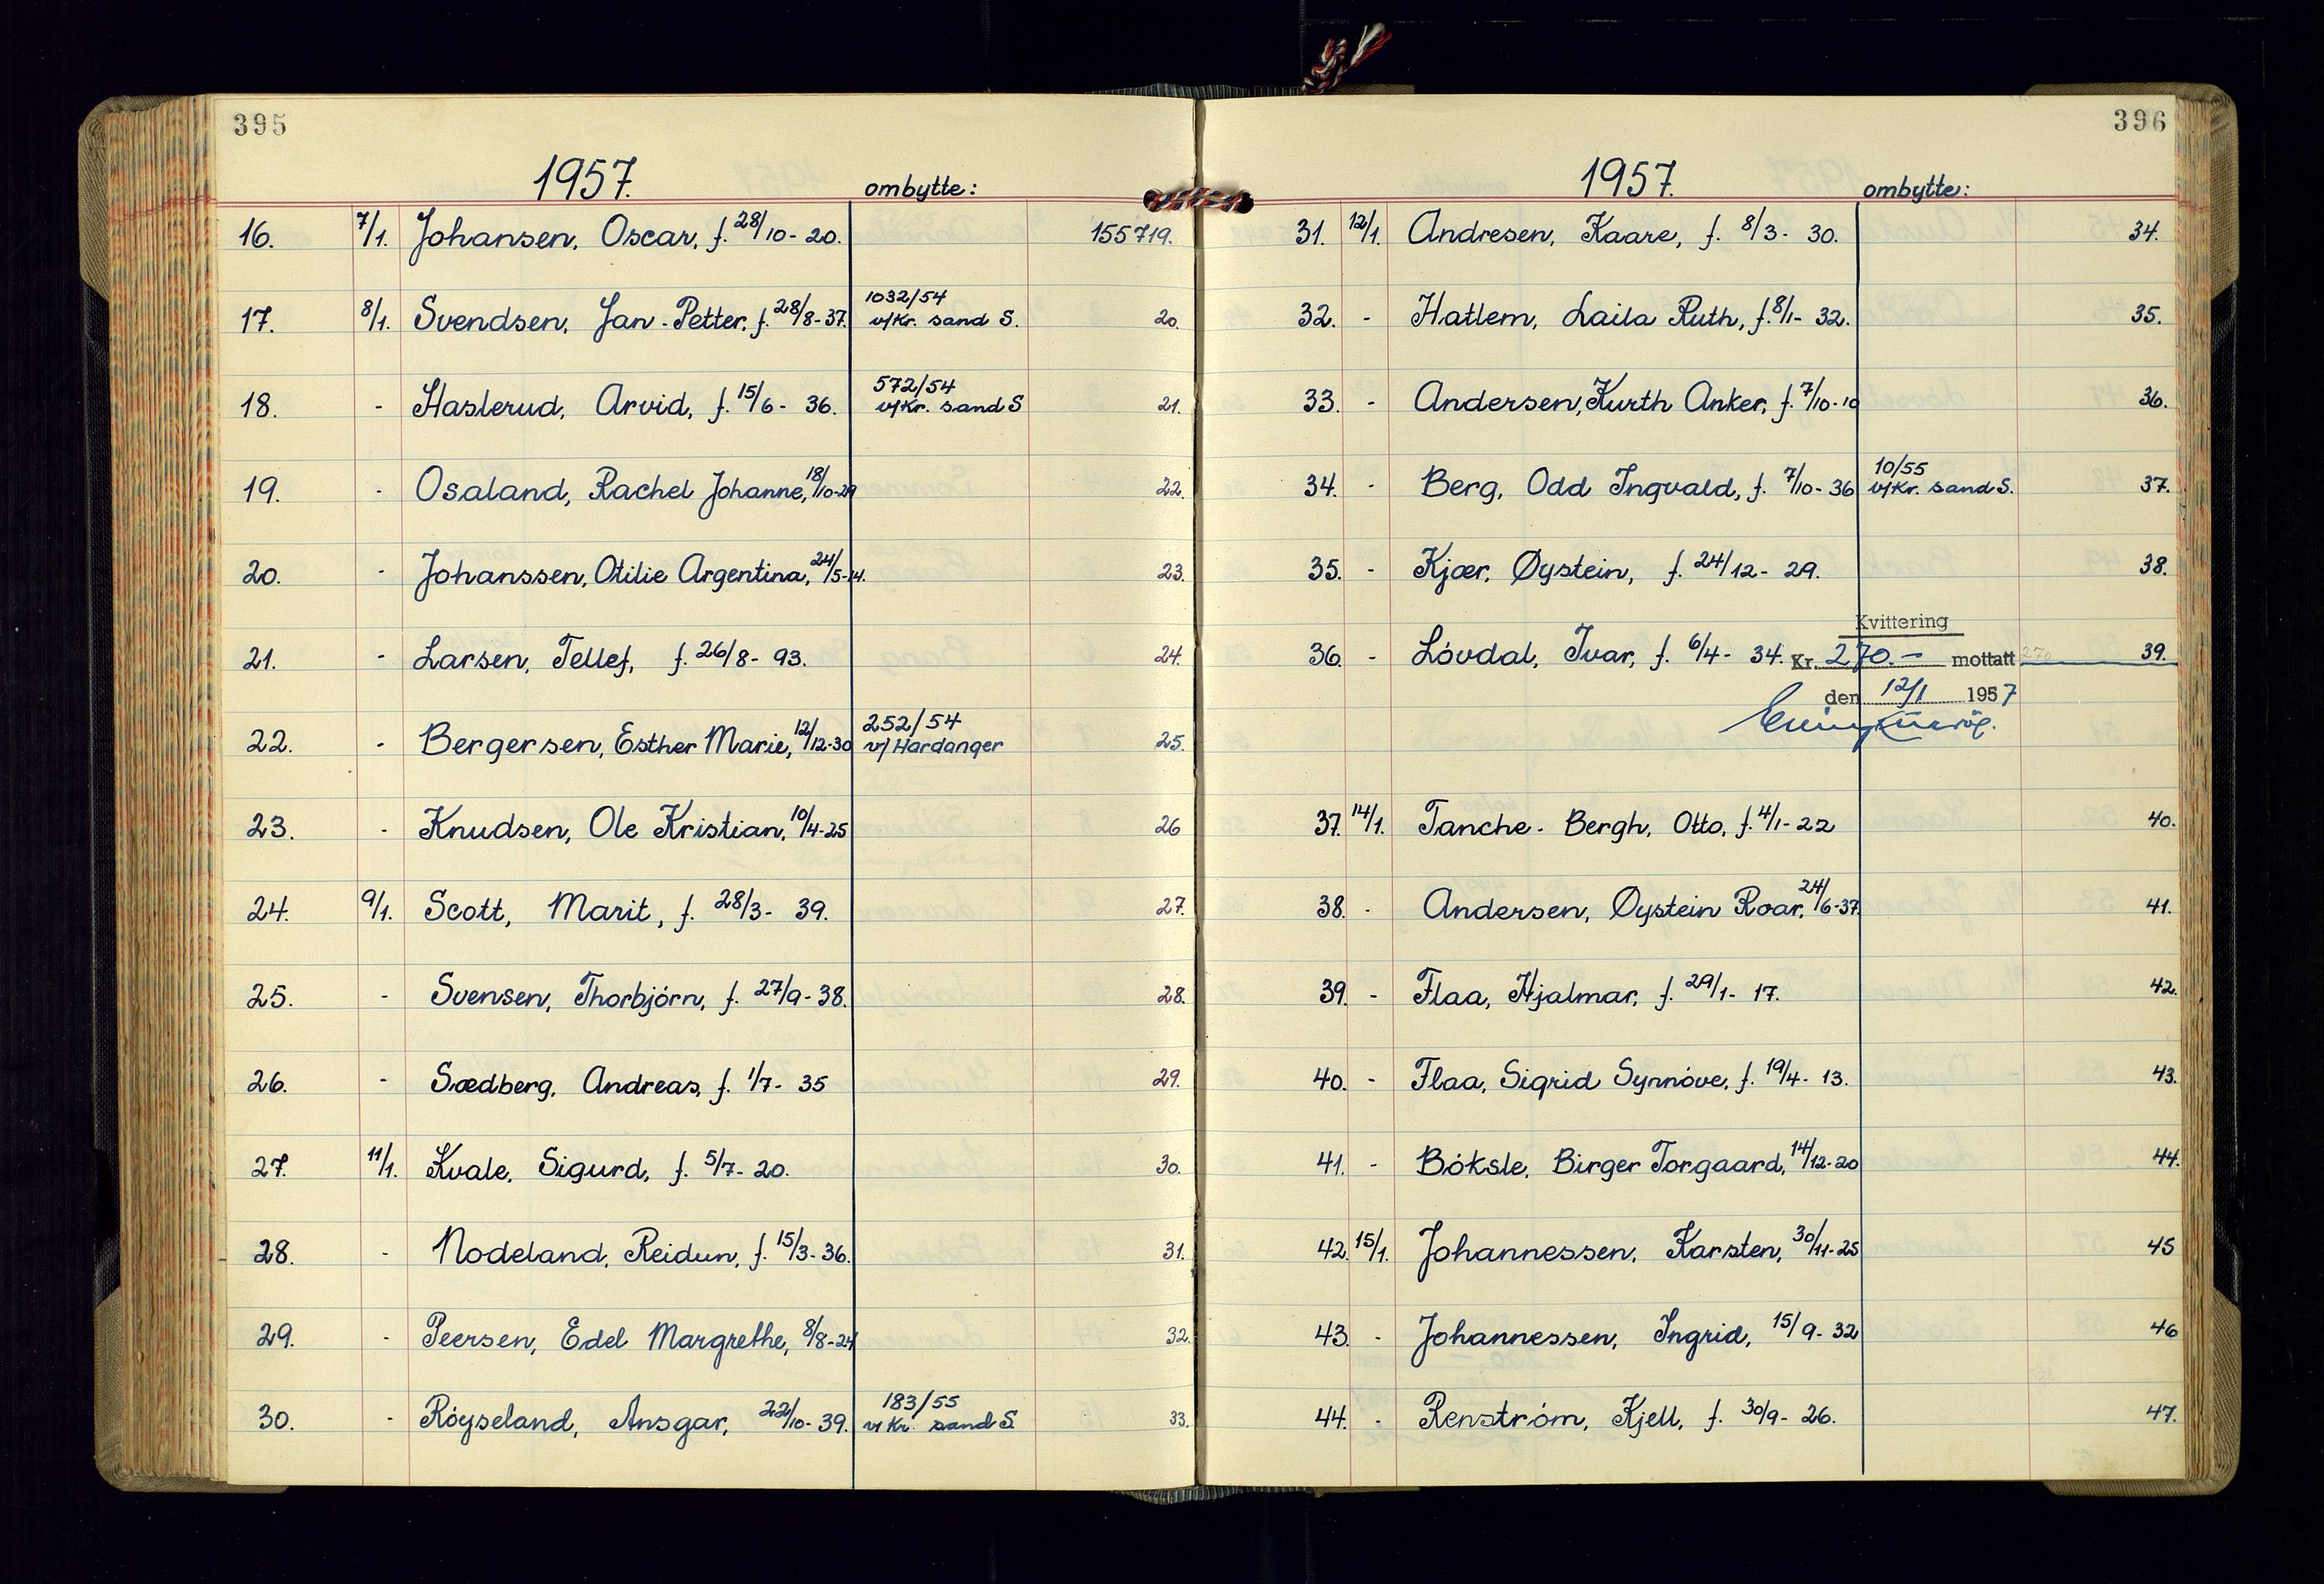 395
1957. ombytte:
16. 7/1. Johansen, Oscar, f. 28/10-20. 155719.
17. 8/1. Svendsen, Jan-Petter, f. 28/8-37. 1032/54 v/Kr. sand S. 20.
18. - Haslerud, Arvid, f. 15/6-36. 572/54 v/Kr. sand S 21.
19. - Osaland, Rachel Johanne, 18/10-29 22.
20. - Johanssen, Otilie Argentina, 24/5-14. 23.
21. - Larsen, Tellef, f. 26/8-93. 24.
22. - Bergersen, Esther Marie, 12/12-30 252/54 v/Hardanger 25.
23. - Knudsen, Ole Kristian, 10/4-25 26
24. 9/1. Scott, Marit, f. 28/3-39. 27.
25. - Svensen, Thorbjórn, f. 27/9-38. 28.
26. - Sædberg, Andreas, f. 1/7-35 29.
27. 11/1. Kvale, Sigurd, f. 5/7-20. 30.
28. - Nodeland, Reidun, f. 15/3-36. 31.
29. - Peersen, Edel Margrethe, 8/8-24 32.
30. - Róyseland, Ansgar, 22/10-39. 183/55 v/Kr. sand S. 33.
396
1957. ombytte:
31. 12/1. Andresen, Kaare, f. 8/3-30. 34.
32. - Hatlem, Laila Ruth, f. 8/1-32. 35.
33. - Andersen, Kurth Anker, f. 7/10-10 36.
34. - Berg, Odd Ingvald, f. 7/10-36 10/55 v/Kr. sand S. 37.
35. - Kjær, Øystein, f. 24/12-29. 38.
Kvittering
36. - Lóvdal, Ivar, f. 6/4-34. Kr. 270.- mottatt 270 39.
den 12/1 1957
37. 14/1. Tanche-Bergh, Otto, f. 4/1-22 40.
38. - Andersen, Øystein Roar, 24/6-37. 41.
39. - Flaa, Hjalmar, f. 29/1-17. 42.
40. - Flaa, Sigrid Synnóve, f. 19/4-13. 43.
41. - Bóksle, Birger Torgaard, 14/12-20 44.
42. 15/1. Johannessen, Karsten, 30/11-25 45
43. - Johannessen, Ingrid, 15/9-32 46
44. - Renstróm, Kjell, f. 30/9-26. 47.